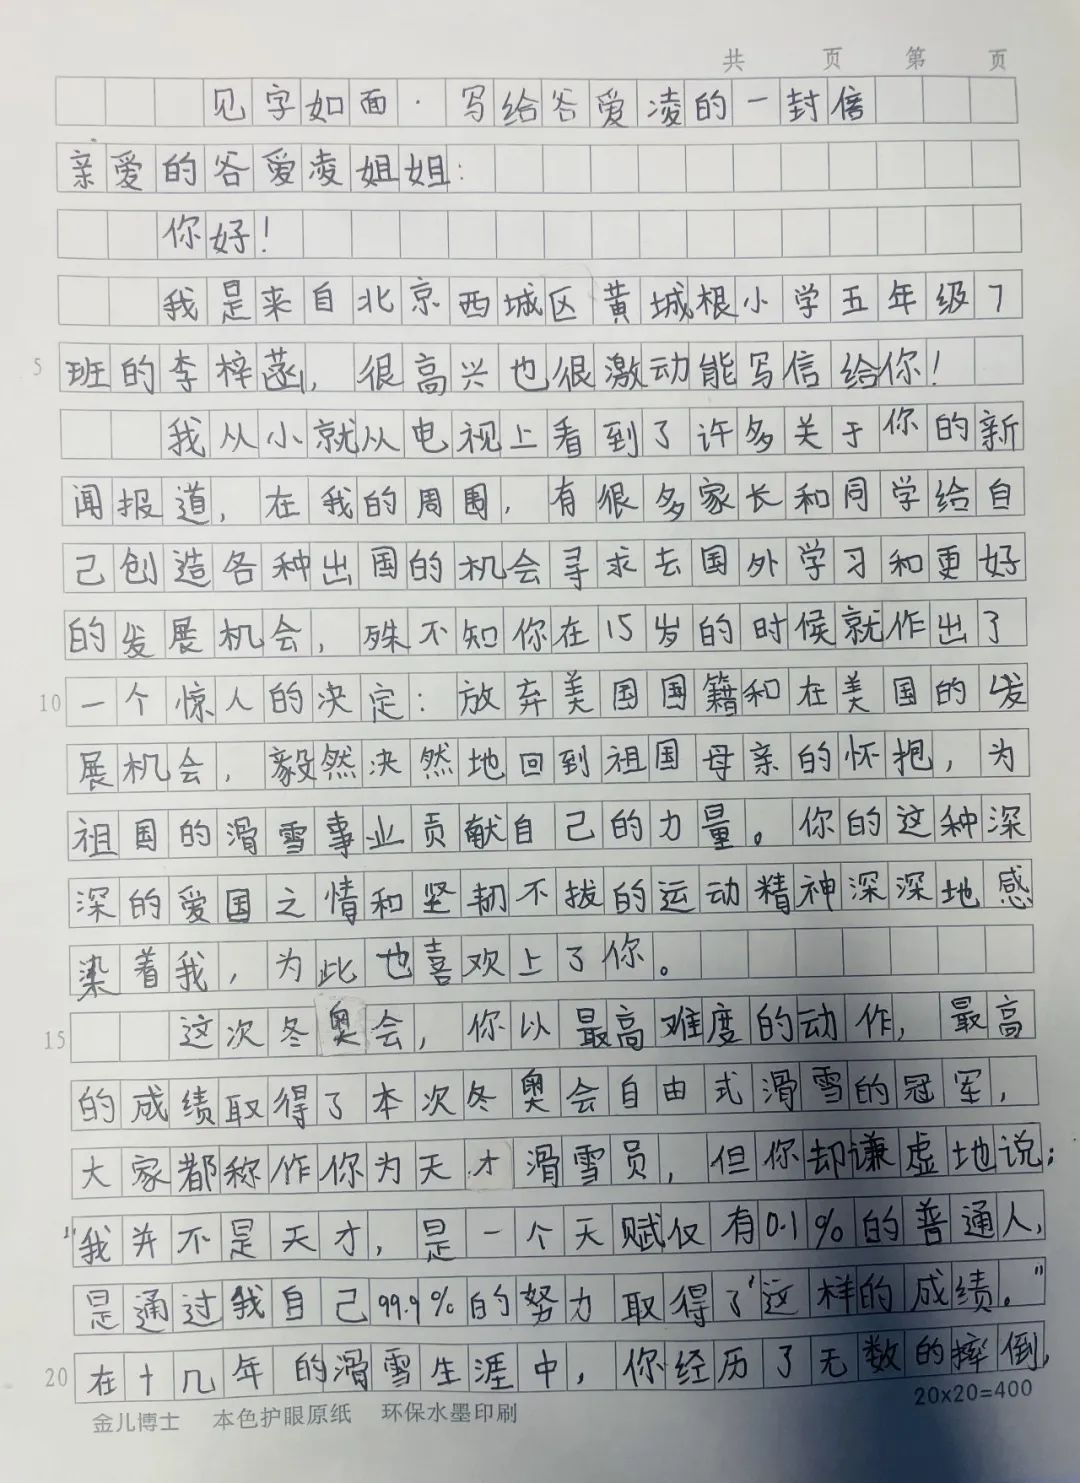 共 页 第 页
见字如面·写给谷爱凌的一封信
亲爱的谷爱凌姐姐：
你好！
我是来自北京西城区黄城根小学五年级7
5 班的李梓菡，很高兴也很激动能写信给你！
我从小就从电视上看到了许多关于你的新
闻报道，在我的周围，有很多家长和同学给自
己创造各种出国的机会寻求去国外学习和更好
的发展机会，殊不知你在15岁的时候就作出了
10 一个惊人的决定：放弃美国国籍和在美国的发
展机会，毅然决然地回到祖国母亲的怀抱，为
祖国的滑雪事业贡献自己的力量。你的这种深
深的爱国之情和坚韧不拔的运动精神深深地感
染着我，为此也喜欢上了你。
15 这次冬奥会，你以最高难度的动作，最高
的成绩取得了本次冬奥会自由式滑雪的冠军，
大家都称作你为天才滑雪员，但你却谦虚地说：
“我并不是天才，是一个天赋仅有0.1%的普通人，
是通过我自己99.9%的努力取得了这样的成绩。”
20 在十几年的滑雪生涯中，你经历了无数的摔倒，
20×20=400
金儿博士 本色护眼原纸 环保水墨印刷